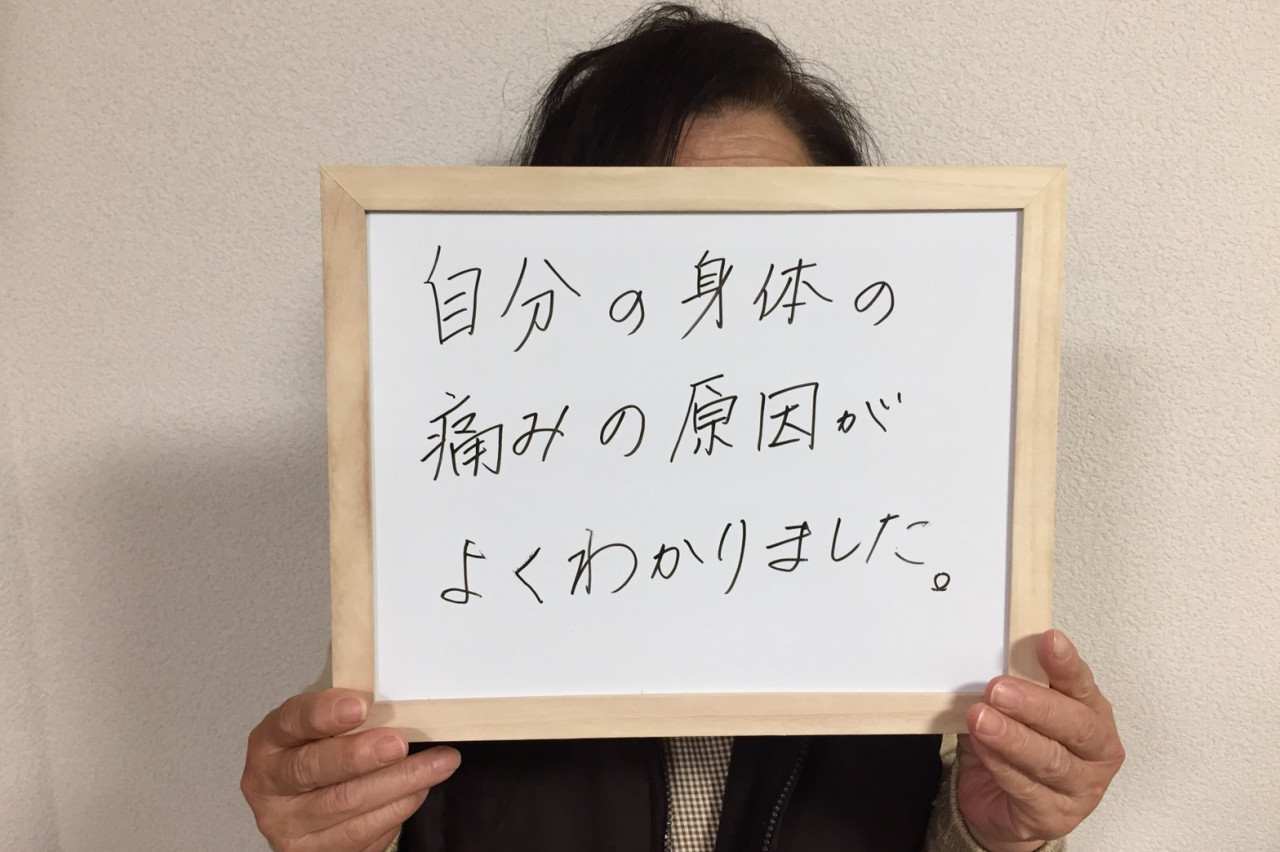 自分の身体の
痛みの原因が
よくわかりました。